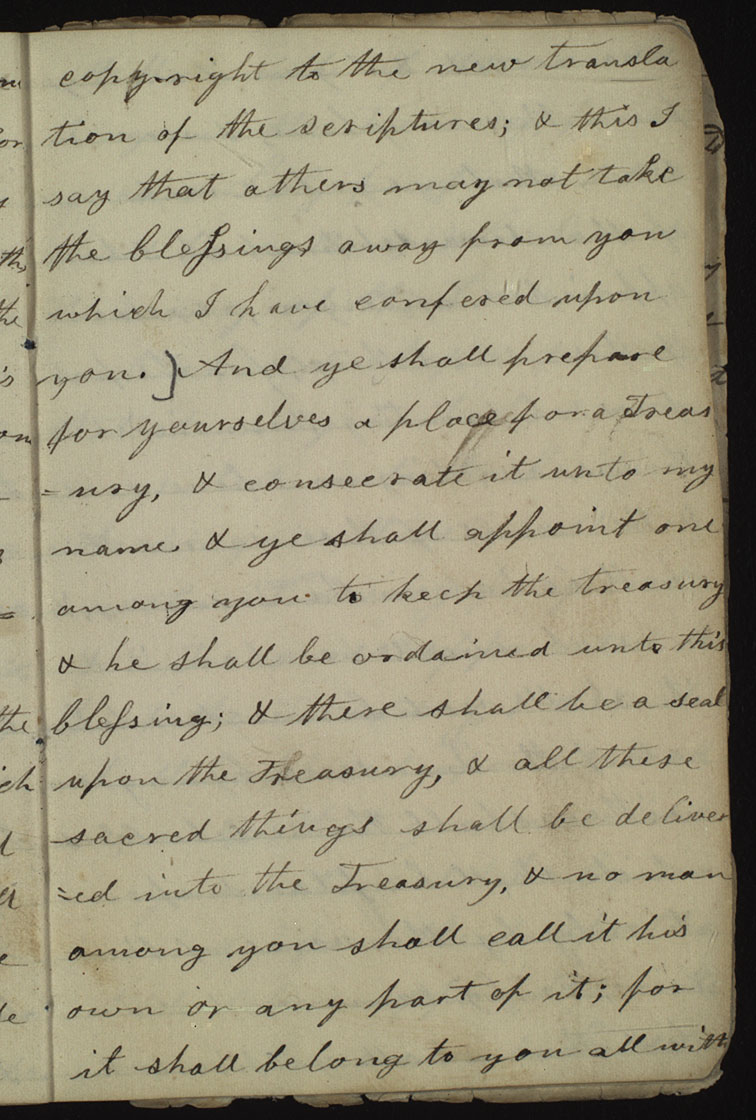 copy-right to the new transla
tion of the scriptures; & this I
say that others may not take
the blessings away from you
which I have confered upon
you.} And ye shall prepare
for yourselves a place for a Treas
=ury, & consecrate it unto my
name. & ye shall appoint one
among you to keep the treasury
& he shall be ordained unto this
blessing; & there shall be a seal
upon the Treasury, & all these
sacred things shall be deliver
=ed into the Treasury, & no man
among you shall call it his
own or any part of it; for
it shall belong to you all with